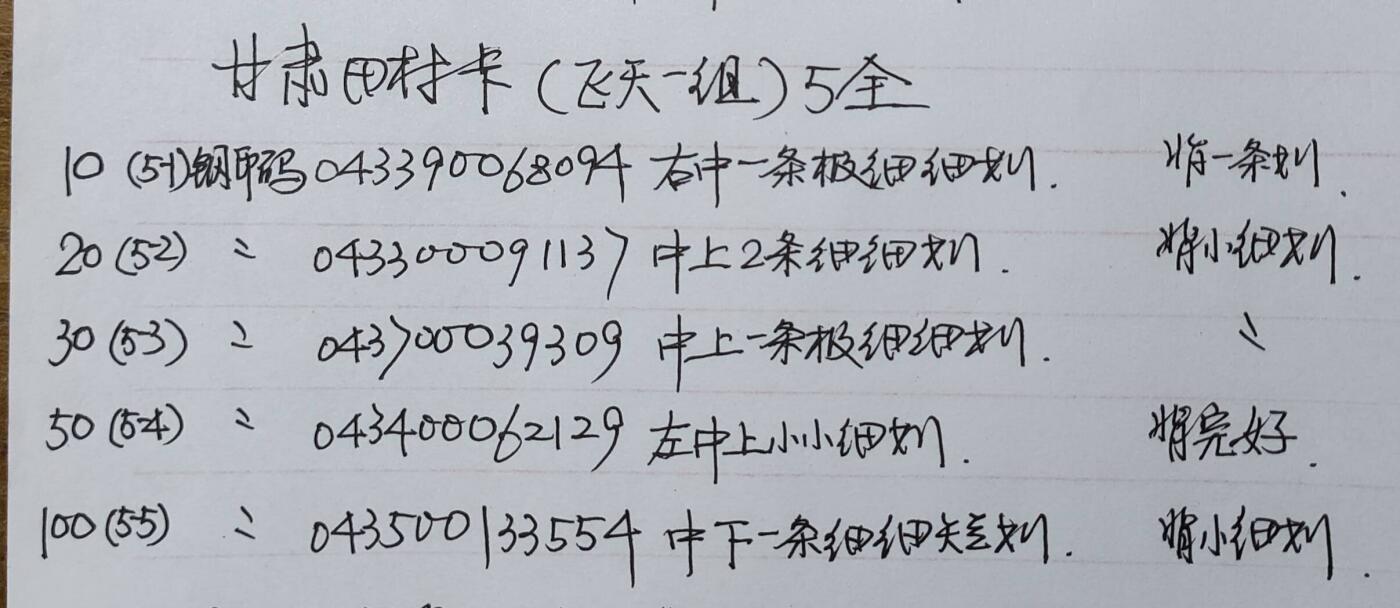 甘肃田村卡(飞天一组)5全
10 (5-1)钢印码 043390068094 右中一条极细细划. 背一条划.
20 (5-2) 〃 043300091137 中上2条细细划. 背小细划.
30 (5-3) 〃 043700039309 中上一条极细细划. 〃
50 (5-4) 〃 043400062129 左中上小小细划. 背完好.
100 (5-5) 〃 043500133554 中下一条细细短划. 背小细划.